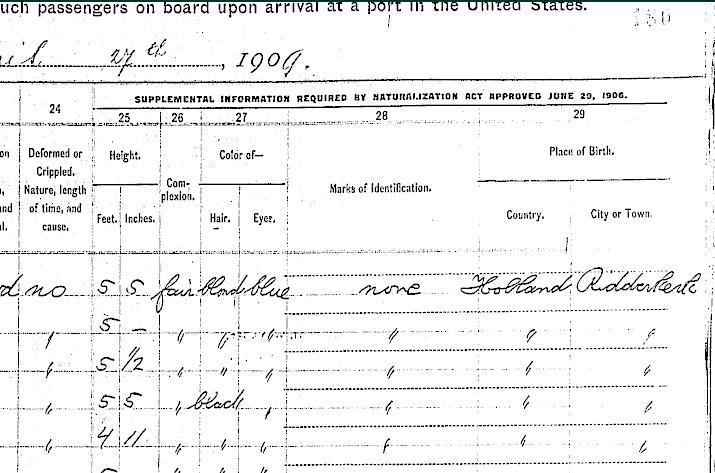 uch passengers on board upon arrival at a port in the United States.
150
27th, 1909.
SUPPLEMENTAL INFORMATION REQUIRED BY NATURALIZATION ACT APPROVED JUNE 29, 1906.
24 25 26 27 28 29
on Deformed or Crippled. Nature, length of time, and cause. Height. Complexion. Color of— Marks of Identification. Place of Birth.
Feet. Inches. Hair. Eyes. Country. City or Town.
d no 5 5 fair blond blue none Holland Ridderkerk
" 5 – " " " " " "
" 5 1/2 " " " " " "
" 5 5 " black " " " "
" 4 11 " " " " " "